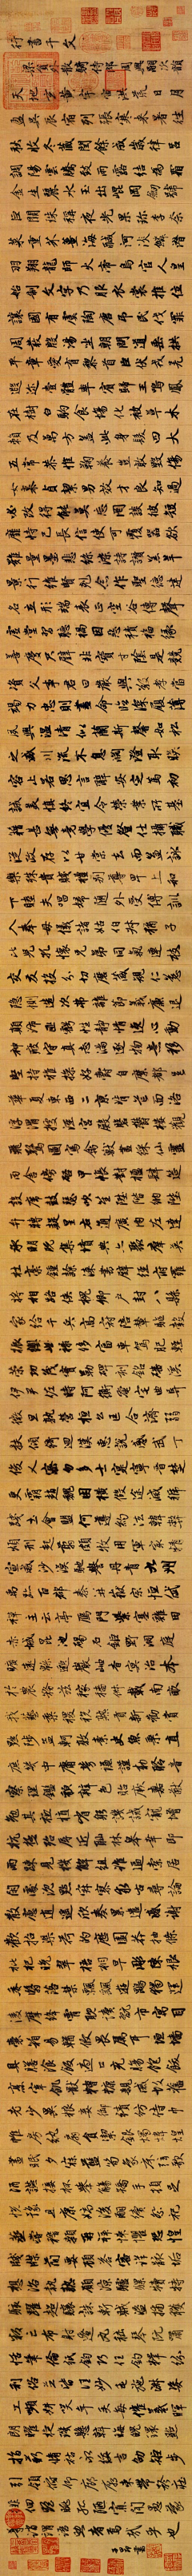 行書千文
梁員外散騎侍郎周興嗣次韻
天地玄黃宇宙洪荒日月
盈昃辰宿列張寒來暑往
秋收冬藏閏餘成歲律呂
調陽雲騰致雨露結為霜
金生麗水玉出崐岡劒號
巨闕珠稱夜光果珎李柰
菜重芥薑海醎河淡鱗潛
羽翔龍師火帝鳥官人皇
始制文字乃服衣裳推位
讓國有虞陶唐弔民伐罪
周發殷湯坐朝問道垂拱
平章愛育黎首臣伏戎羌
遐迩壹體率賓歸王鳴鳳
在樹白駒食場化被草木
賴及萬方蓋此身髮四大
五常恭惟鞠養豈敢毀傷
女慕貞潔男效才良知過
必改得能莫忘罔談彼短
靡恃己長信使可覆器欲
難量墨悲絲染詩讚羔羊
景行維賢克念作聖德建
名立形端表正空谷傳聲
虛堂習聽禍因惡積福緣
善慶尺璧非寶寸陰是競
資父事君曰嚴與敬孝當
竭力忠則盡命臨深履薄
夙興溫凊似蘭斯馨如松
之盛川流不息淵澄取暎
容止若思言辭安定篤初
誠美慎終宜令榮業所基
籍甚無竟學優登仕攝職
從政存以甘棠去而益詠
樂殊貴賤禮別尊卑上和
下睦夫唱婦隨外受傅訓
入奉母儀諸姑伯叔猶子
比兒孔懷兄弟同氣連枝
交友投分切磨箴規仁慈
隱惻造次弗離節義廉退
顛沛匪虧性靜情逸心動
神疲守真志滿逐物意移
堅持雅操好爵自縻都邑
華夏東西二京背芒面洛
浮渭據涇宮殿盤鬱樓觀
飛驚圖寫禽獸畫綵仙靈
丙舍傍啟甲帳對楹肆筵
設席鼓瑟吹笙陞階納陛
弁轉疑星右通廣內左達
承明既集墳典亦聚群英
杜稾鍾隸漆書壁經府羅
將相路俠槐卿戶封八縣
家給千兵高冠陪輦驅轂
振纓世祿侈富車駕肥輕
策功茂實勒碑刻銘磻溪
伊尹佐時阿衡奄宅曲阜
微旦孰營桓公匡合濟弱
扶傾綺迴漢惠說感武丁
俊乂密勿多士寔寧晉楚
更霸趙魏困橫假途滅虢
踐土會盟何遵約法韓弊
煩刑起翦頗牧用軍最精
宣威沙漠馳譽丹青九州
禹跡百郡秦并嶽宗恒岱
禪主云亭鴈門紫塞雞田
赤城昆池碣石鉅野洞庭
曠遠綿邈巖岫杳冥治本
於農務茲稼穡俶載南畝
我藝黍稷稅熟貢新勸賞
黜陟孟軻敦素史魚秉直
庶幾中庸勞謙謹勑聆音
察理鑑貌辨色貽厥嘉猷
勉其祗植省躬譏誡寵增
抗極殆辱近恥林臯幸即
兩疏見機解組誰逼索居
閑處沉默寂寥求古尋論
散慮逍遙欣奏累遣慼謝
歡招渠荷的歷園莽抽條
枇杷晚翠梧桐早彫陳根
委翳落葉飄颻遊鵾獨運
凌摩絳霄耽讀翫市寓目
囊箱易輶攸畏屬耳垣墻
具膳湌飯適口充腸飽飫
烹宰飢厭糟糠親戚故舊
老少異粮妾御績紡侍巾
帷房紈扇圓潔銀燭煒煌
晝眠夕寐藍筍象床絃歌
酒讌接杯舉觴矯手頓足
悅豫且康嫡後嗣續祭祀
蒸嘗稽顙再拜悚懼恐惶
牋牒簡要顧答審詳骸垢
想浴執熱願涼驢騾犢特
駭躍超驤誅斬賊盜捕獲
叛亡布射遼丸嵇琴阮嘯
恬筆倫紙鈞巧任釣釋紛
利俗並皆佳妙毛施淑姿
工顰妍笑年矢每催羲暉
朗曜琁璣懸斡晦魄環照
指薪脩祜永綏吉劭矩步
引領俯仰廊廟束帶矜莊
徘徊瞻眺孤陋寡聞愚蒙
等誚謂語助者焉哉乎也
子昂書